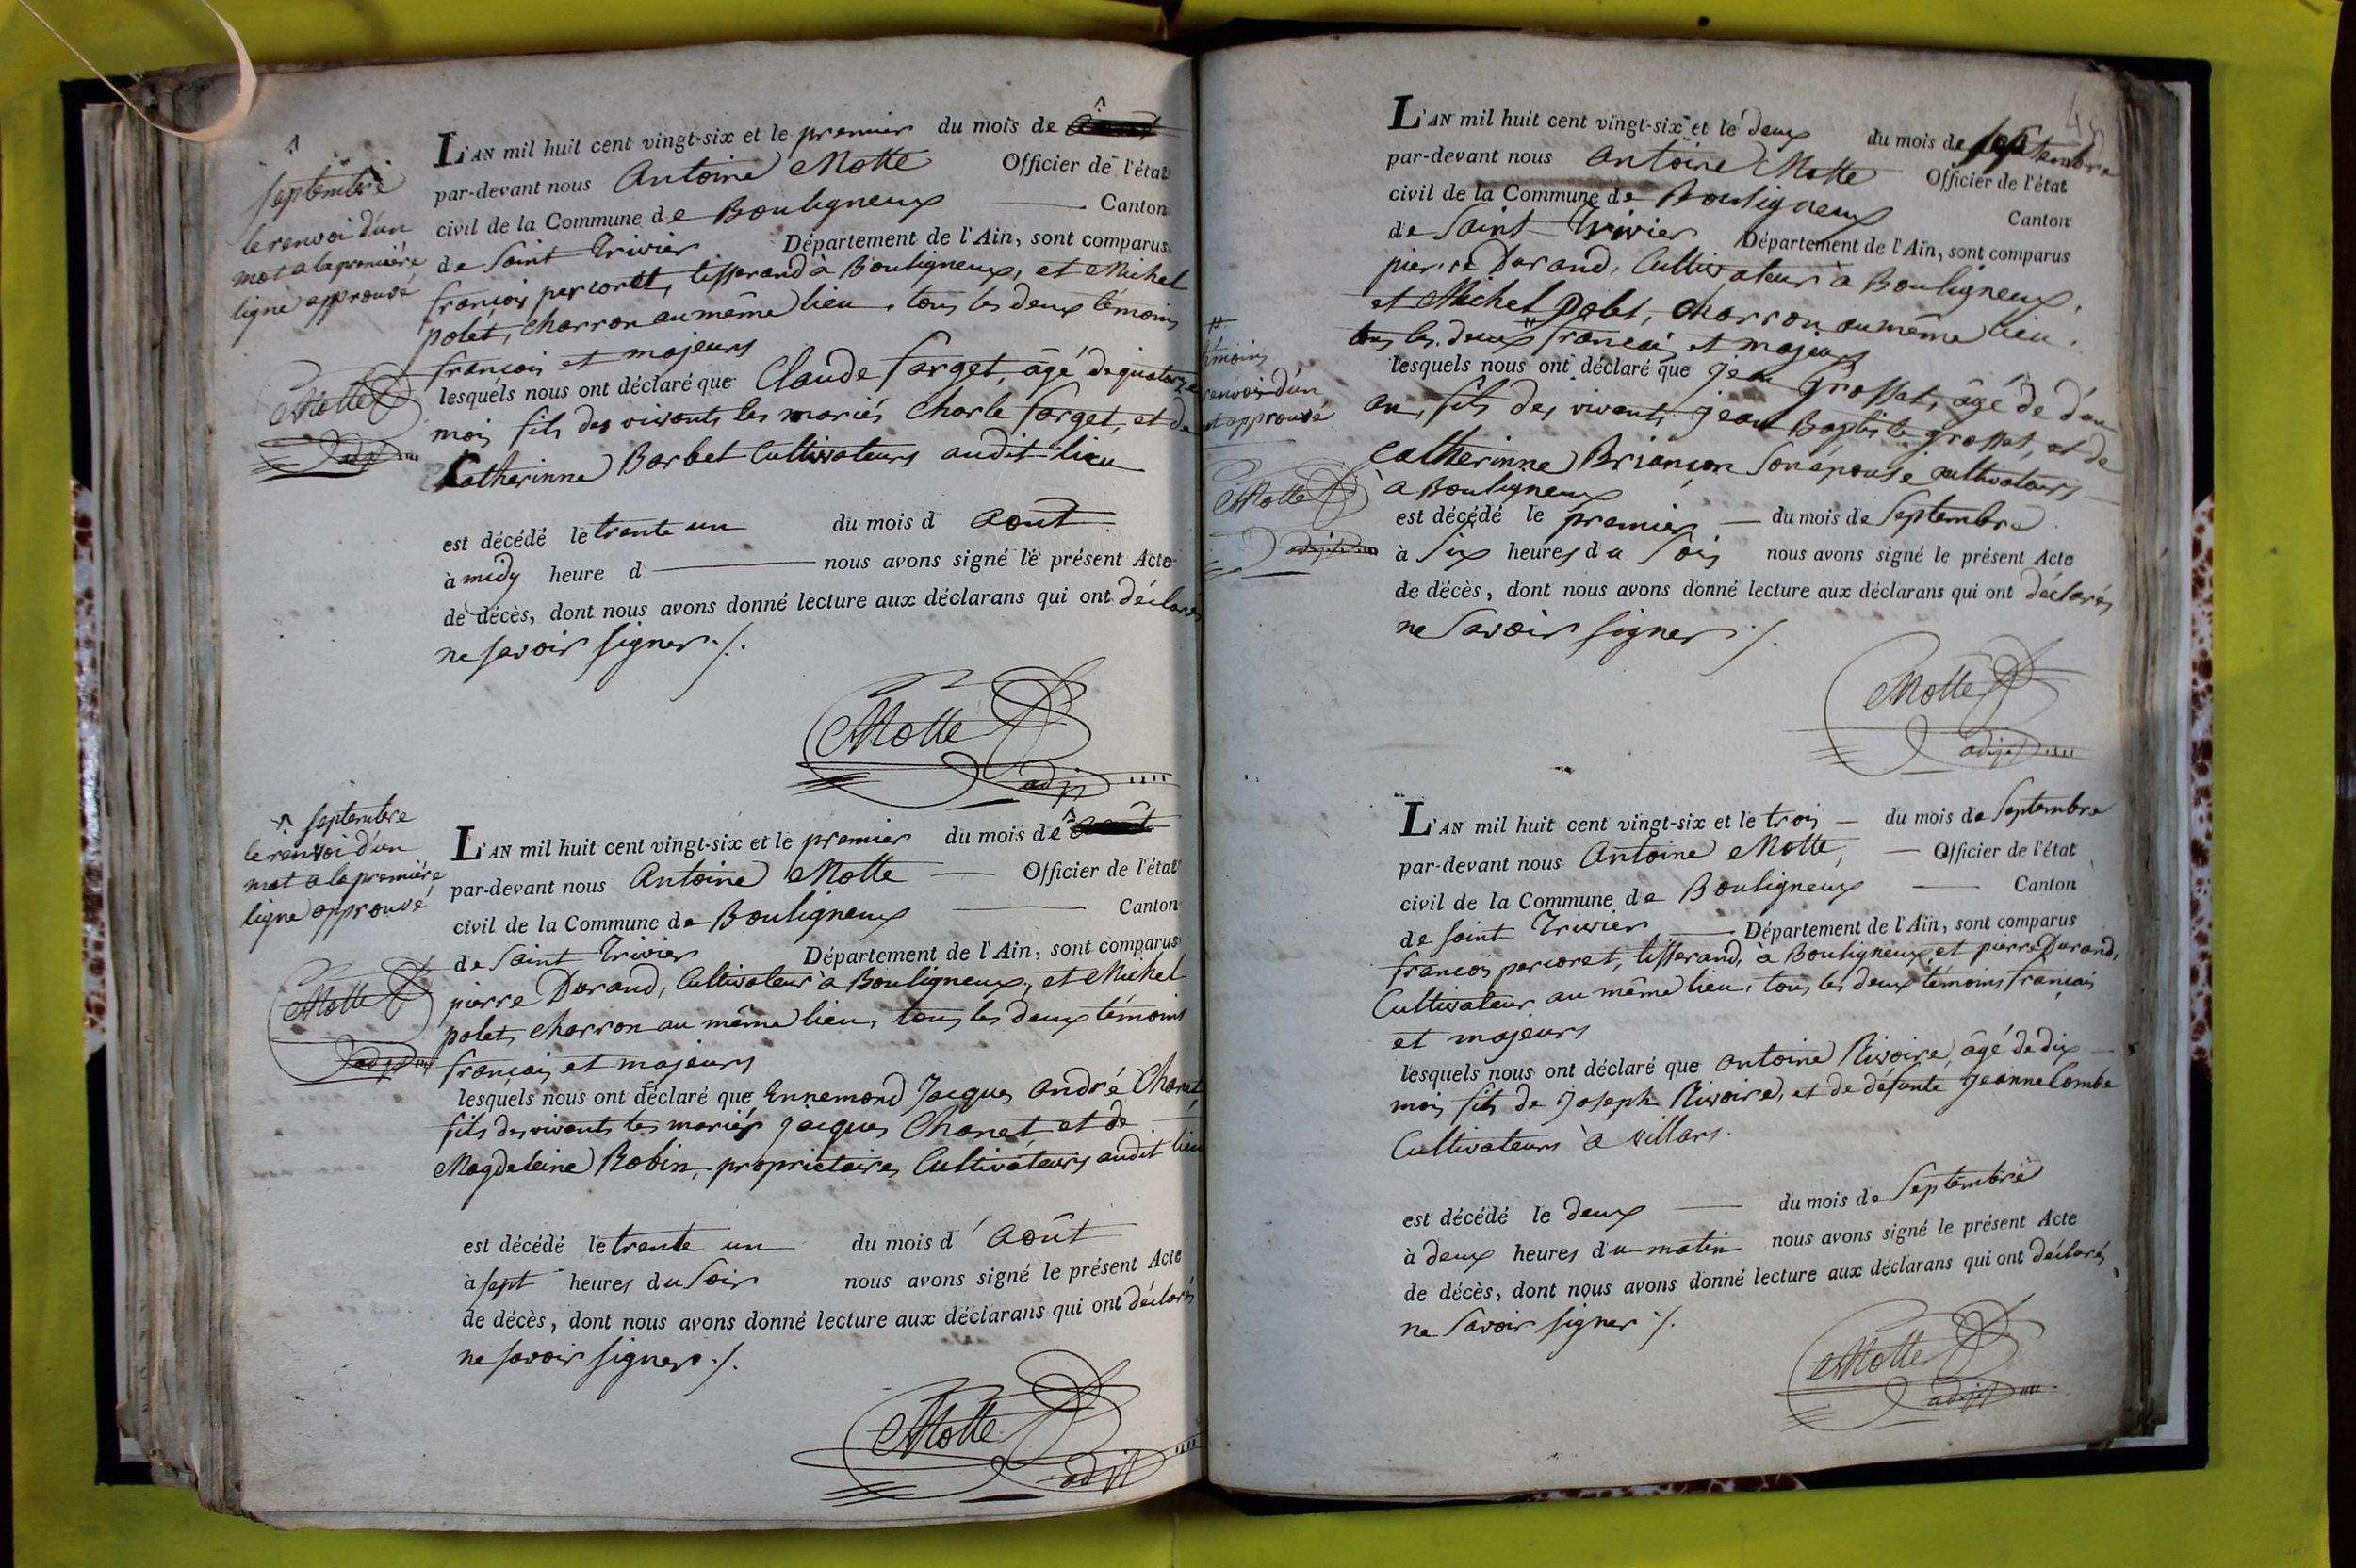 L'AN mil huit cent vingt-six et le premier du mois de
par-devant nous Antoine Motte Officier de l'état
civil de la Commune de Bouligneux Canton
de Saint Trivier Département de l'Ain, sont comparus
françois percoret, tisserand à Bouligneux, et Michel
polet, charron au même lieu, tous les deux témoins
françois et majeurs
lesquels nous ont déclaré que Claude forget, âgé de quatorze
mois fils des vivants les mariés Charle forget, et de
Catherinne Barbet Cultivateurs audit lieu
est décédé le trente un du mois d Août
à midy heure d nous avons signé le présent Acte
de décès, dont nous avons donné lecture aux déclarans qui ont déclarés
ne savoir signer ./.
Motte
adjt
septembre
le renvoi d'un
mot a la première
ligne approuvé
Motte
adjt
L'AN mil huit cent vingt-six et le premier du mois de
par-devant nous Antoine Motte Officier de l'état
civil de la Commune de Bouligneux Canton
de Saint Trivier Département de l'Ain, sont comparus
pierre Durand, Cultivateur à Bouligneux, et Michel
polet, charron au même lieu, tous les deux témoins
français et majeurs
lesquels nous ont déclaré que Ennemond Jacques André Chanet
fils des vivants les mariés jacques Chanet et de
Magdeleine Robin, propriétaires Cultivateurs audit lieu
est décédé le trente un du mois d' Août
à sept heures du Soir nous avons signé le présent Acte
de décès, dont nous avons donné lecture aux déclarans qui ont déclarés
ne savoir signer ./.
Motte
adjt
septembre
le renvoi d'un
mot a la première
ligne approuvé
Motte
adjt
L'AN mil huit cent vingt-six et le deux du mois de septembre
par-devant nous Antoine Motte Officier de l'état
civil de la Commune de Bouligneux Canton
de Saint Trivier Département de l'Ain, sont comparus
pierre Durand, Cultivateur à Bouligneux,
et Michel polet, charron au même lieu,
tous les deux # français et majeurs
lesquels nous ont déclaré que jean Grosset, âgé de d'un
an, fils des vivants jean Baptiste grosset, et de
Catherinne Briançon Son épouse cultivateurs
à Bouligneux
est décédé le premier du mois de Septembre
à Six heures du Soir nous avons signé le présent Acte
de décès, dont nous avons donné lecture aux déclarans qui ont déclarés
ne Savoir signer ./.
Motte
adjt
#
témoins
renvoi d'un
et approuvé
Motte
adjt
L'AN mil huit cent vingt-six et le trois du mois de Septembre
par-devant nous Antoine Motte, Officier de l'état
civil de la Commune de Bouligneux Canton
de saint Trivier Département de l'Ain, sont comparus
françois percoret, tisserand, à Bouligneux, et pierre Durand,
Cultivateur au même lieu, tous les deux témoins français
et majeurs
lesquels nous ont déclaré que antoine Rivoire, âgé de dix
mois fils de Joseph Rivoire, et de défunte Jeanne Combe
Cultivateurs à villars.
est décédé le deux du mois de Septembre
à deux heures du matin nous avons signé le présent Acte
de décès, dont nous avons donné lecture aux déclarans qui ont déclarés
ne Savoir signer ./.
Motte
adjt